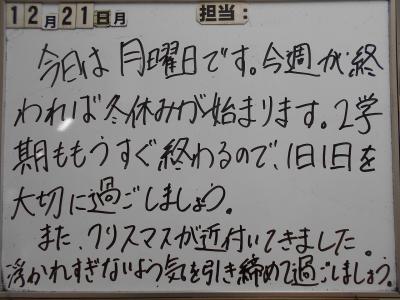 12月21日月 担当:
今日は月曜日です。今週が終
われば冬休みが始まります。2学
期ももうすぐ終わるので、1日1日を
大切に過ごしましょう。
また、クリスマスが近付いてきました。
浮かれすぎないよう気を引き締めて過ごしましょう。